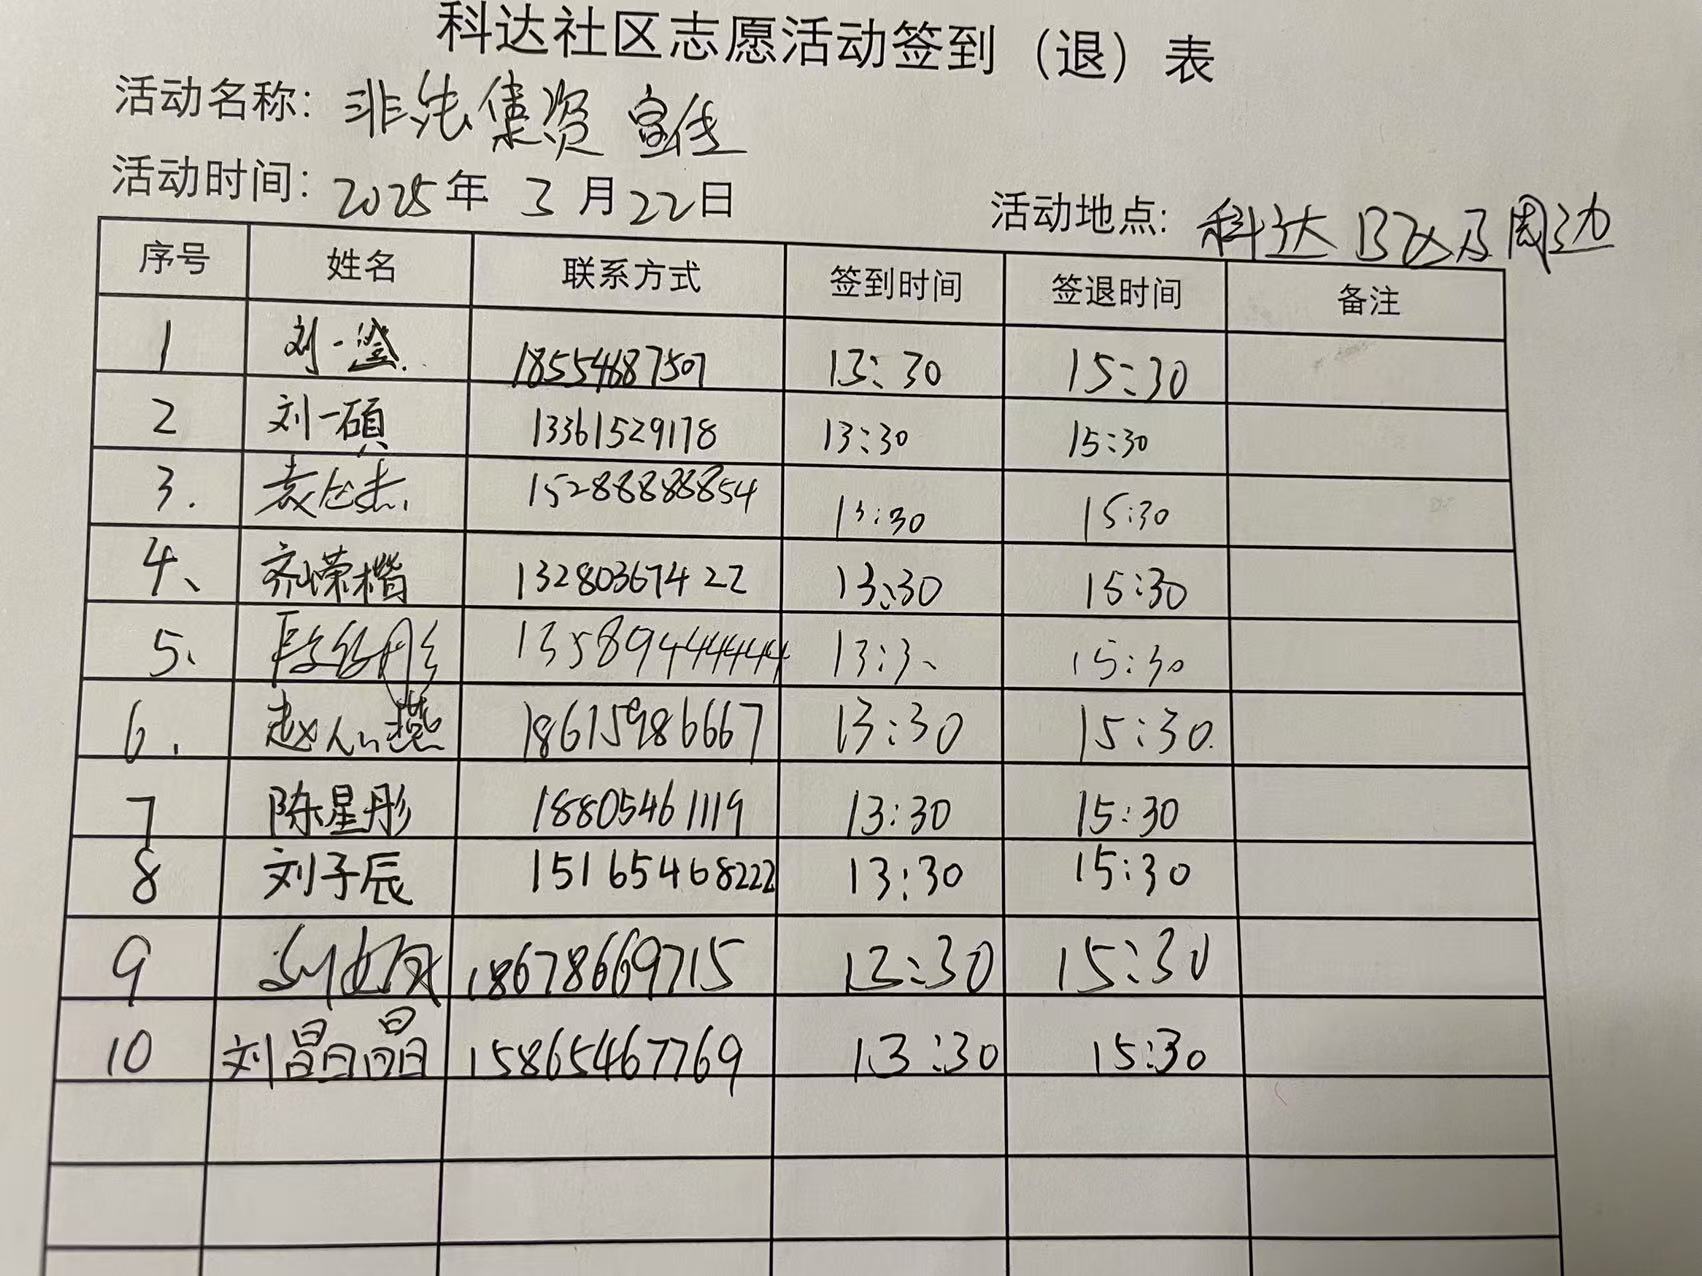 科达社区志愿活动签到（退）表
活动名称: 非法集资 宣传
活动时间: 2025年 3 月 22日 活动地点: 科达 B区及周边
序号 姓名 联系方式 签到时间 签退时间 备注
1 刘一澄 18554687507 13:30 15:30
2 刘一碩 13361529178 13:30 15:30
3. 袁 15288888854 13:30 15:30
4、 齐嵘楷 13280367422 13:30 15:30
5、 13589444444 13:30 15:30
6. 赵 燕 18615986667 13:30 15:30
7 陈星彤 18805461119 13:30 15:30
8 刘子辰 15165468222 13:30 15:30
9 18678669715 13:30 15:30
10 刘晶晶 15865467769 13:30 15:30